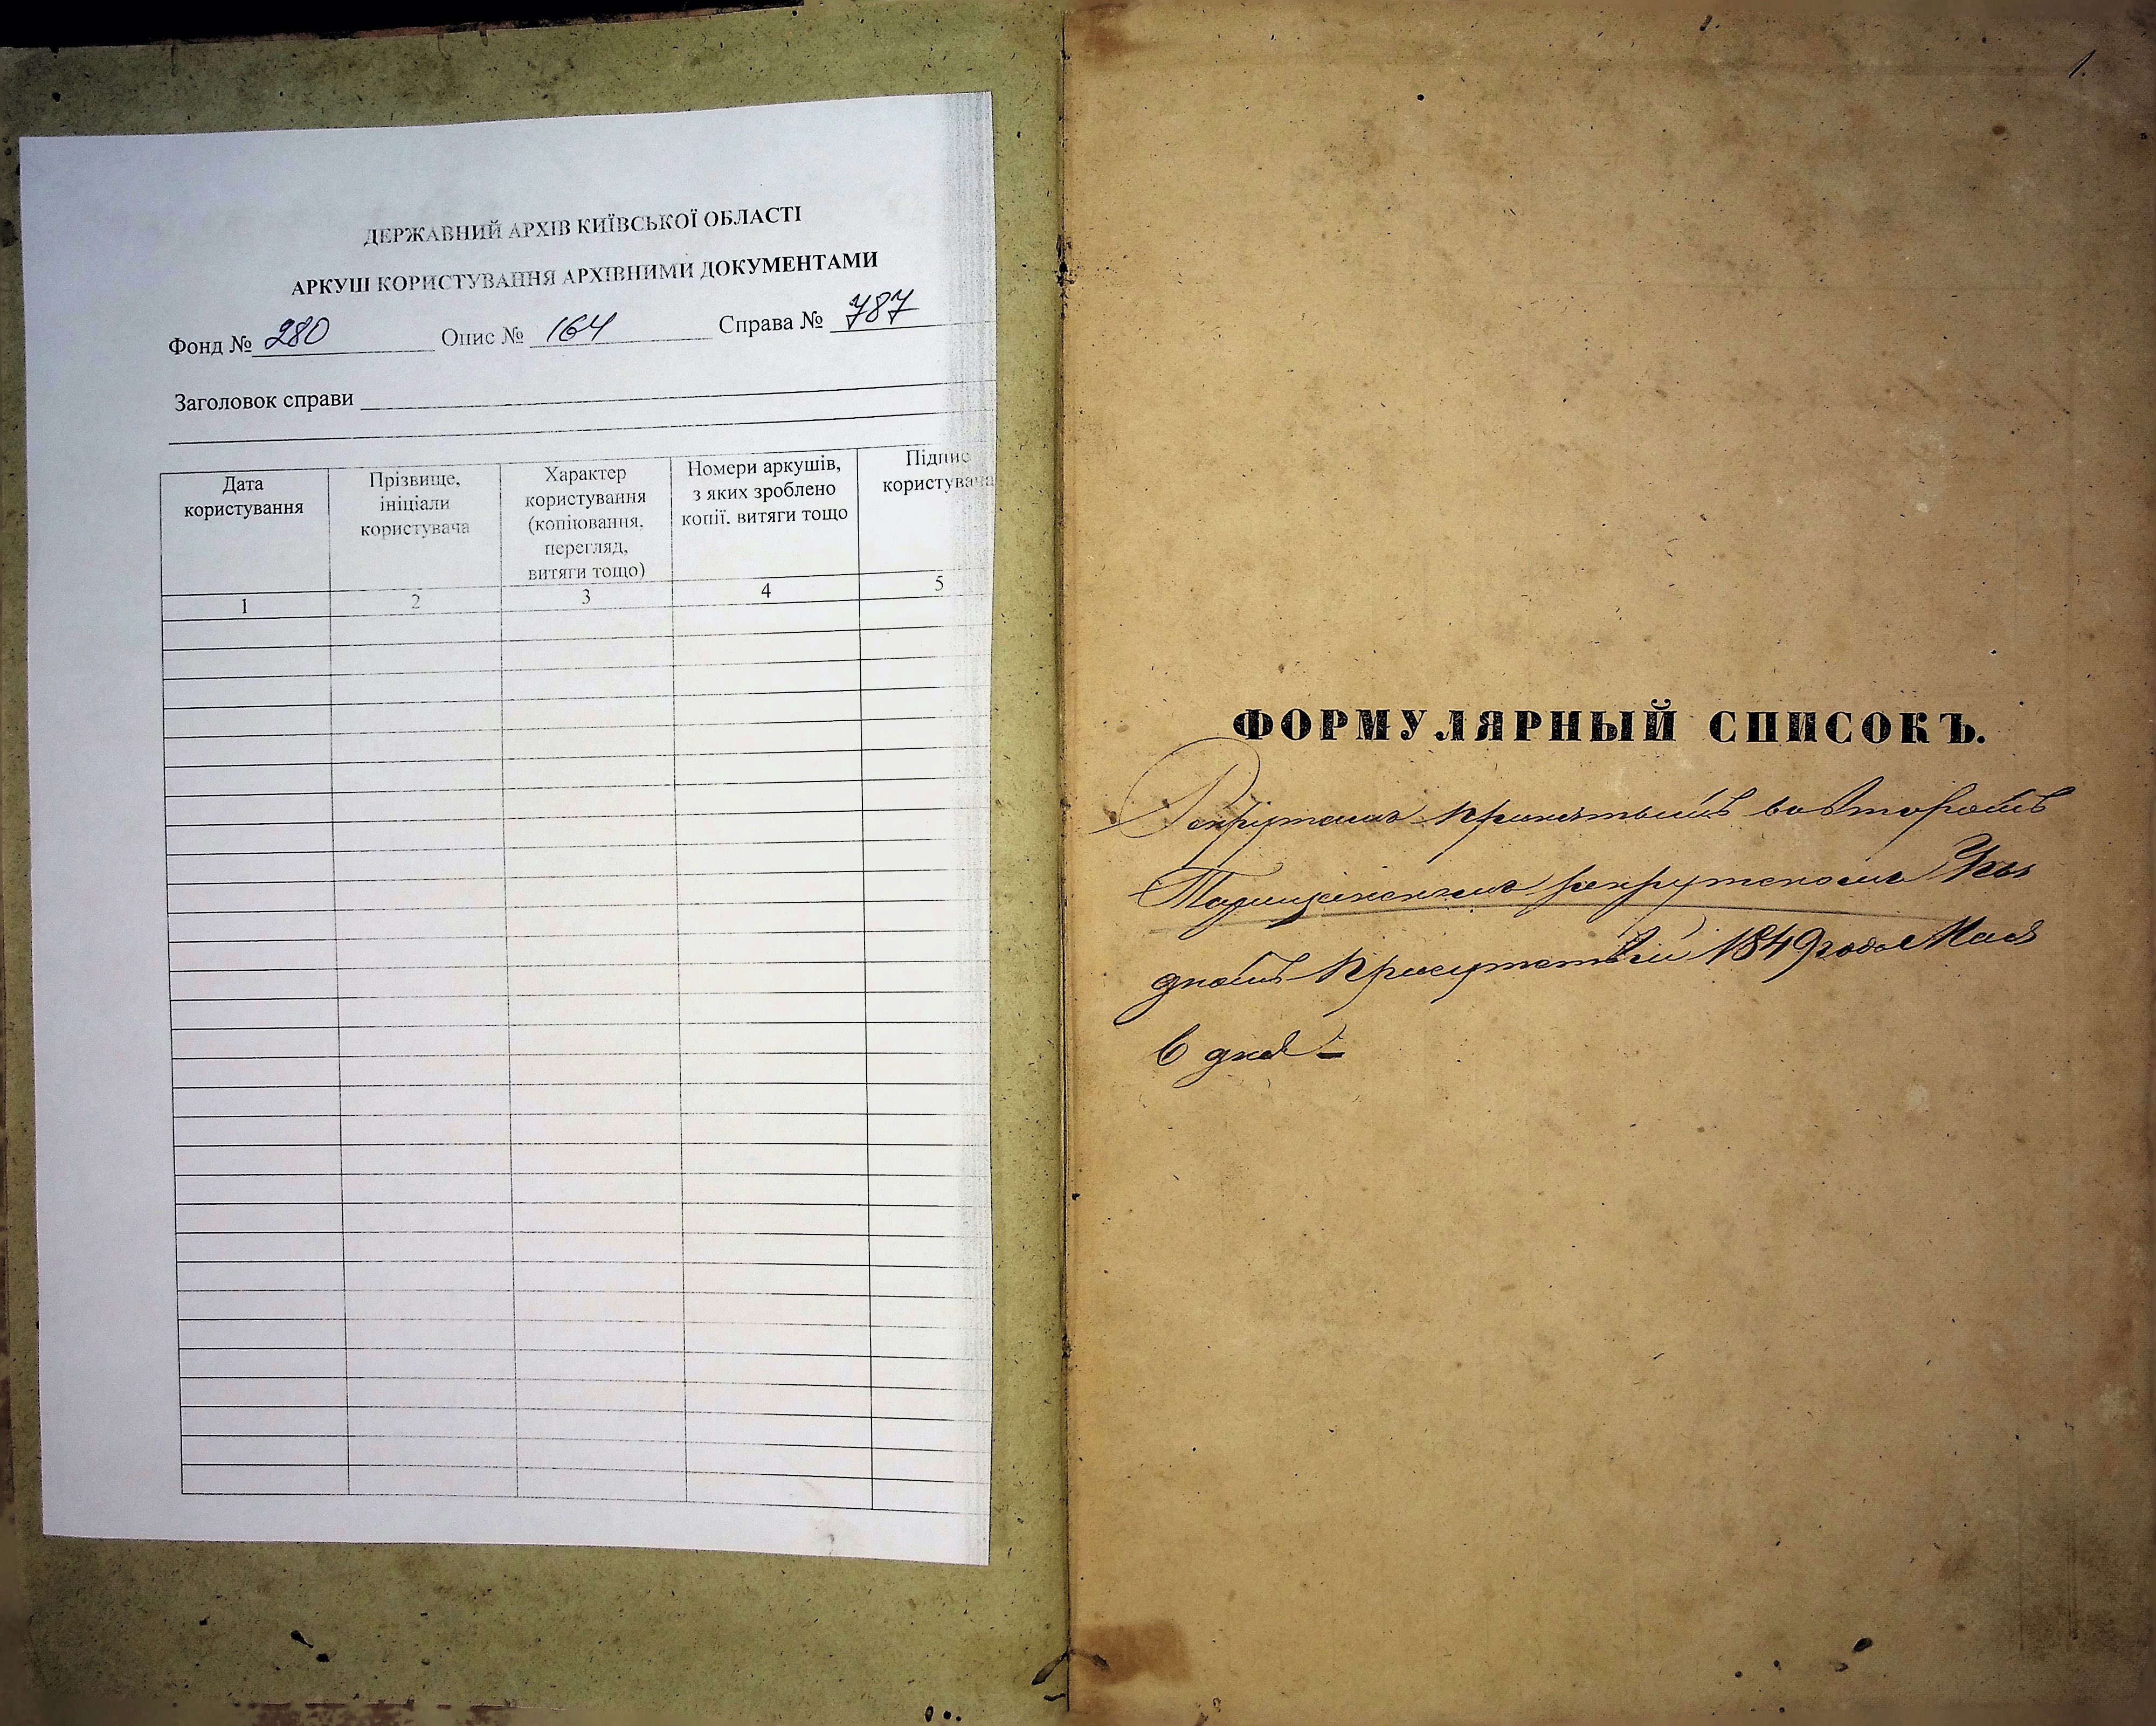 ДЕРЖАВНИЙ АРХІВ КИЇВСЬКОЇ ОБЛАСТІ
АРКУШ КОРИСТУВАННЯ АРХІВНИМИ ДОКУМЕНТАМИ
Фонд № 280 Опис № 164 Справа № 787
Заголовок справи
Дата
користування
Прізвище,
ініціали
користувача
Характер
користування
(копіювання,
перегляд,
витяги тощо)
Номери аркушів,
з яких зроблено
копії, витяги тощо
Підпис
користувача
1 2 3 4 5
1.
ФОРМУЛЯРНЫЙ СПИСОКЪ.
Рекрутамъ принятымъ во второмъ
Таращанскомъ рекрутскомъ Уѣз
дномъ Присутствіи 1849 года Мая
6 дня